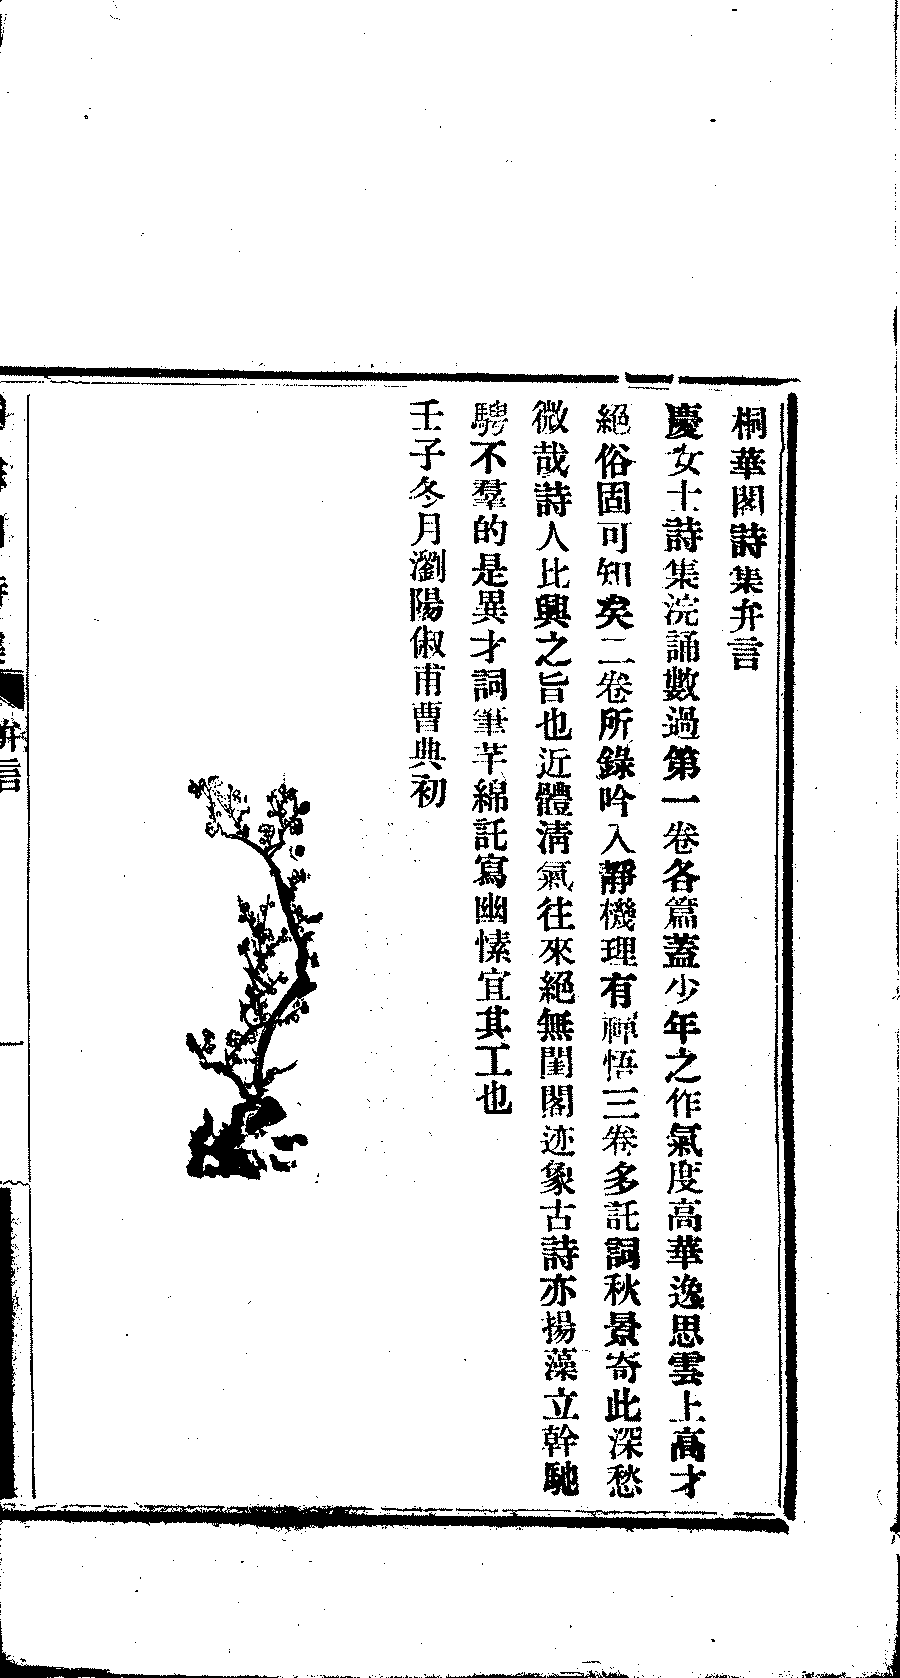 桐華閣詩集弁言
慶女士詩集浣誦數過第一卷各篇蓋少年之作氣度高華逸思雲上高才
絕俗固可知矣二卷所錄吟入靜機理有禪悟三卷多託詞秋景寄此深愁
微哉詩人比興之旨也近體清氣往來絕無閨閣迹象古詩亦揚藻立幹馳
騁不羣的是異才詞筆芊綿託寫幽愫宜其工也
壬子冬月瀏陽俶甫曹典初
弁言
一